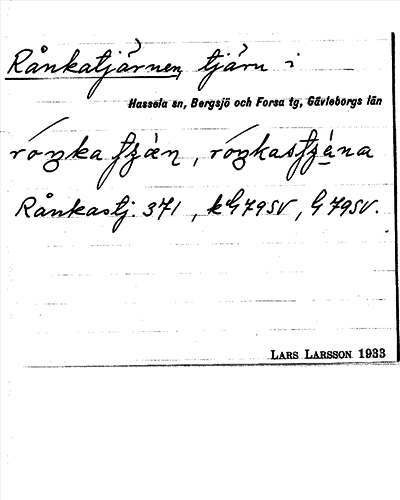 Rånkatjärnen, tjärn i
Hassela sn, Bergsjö och Forsa tg, Gävleborgs län
Rånkastj. 371, kG79SV, G79SV.
LARS LARSSON 1933